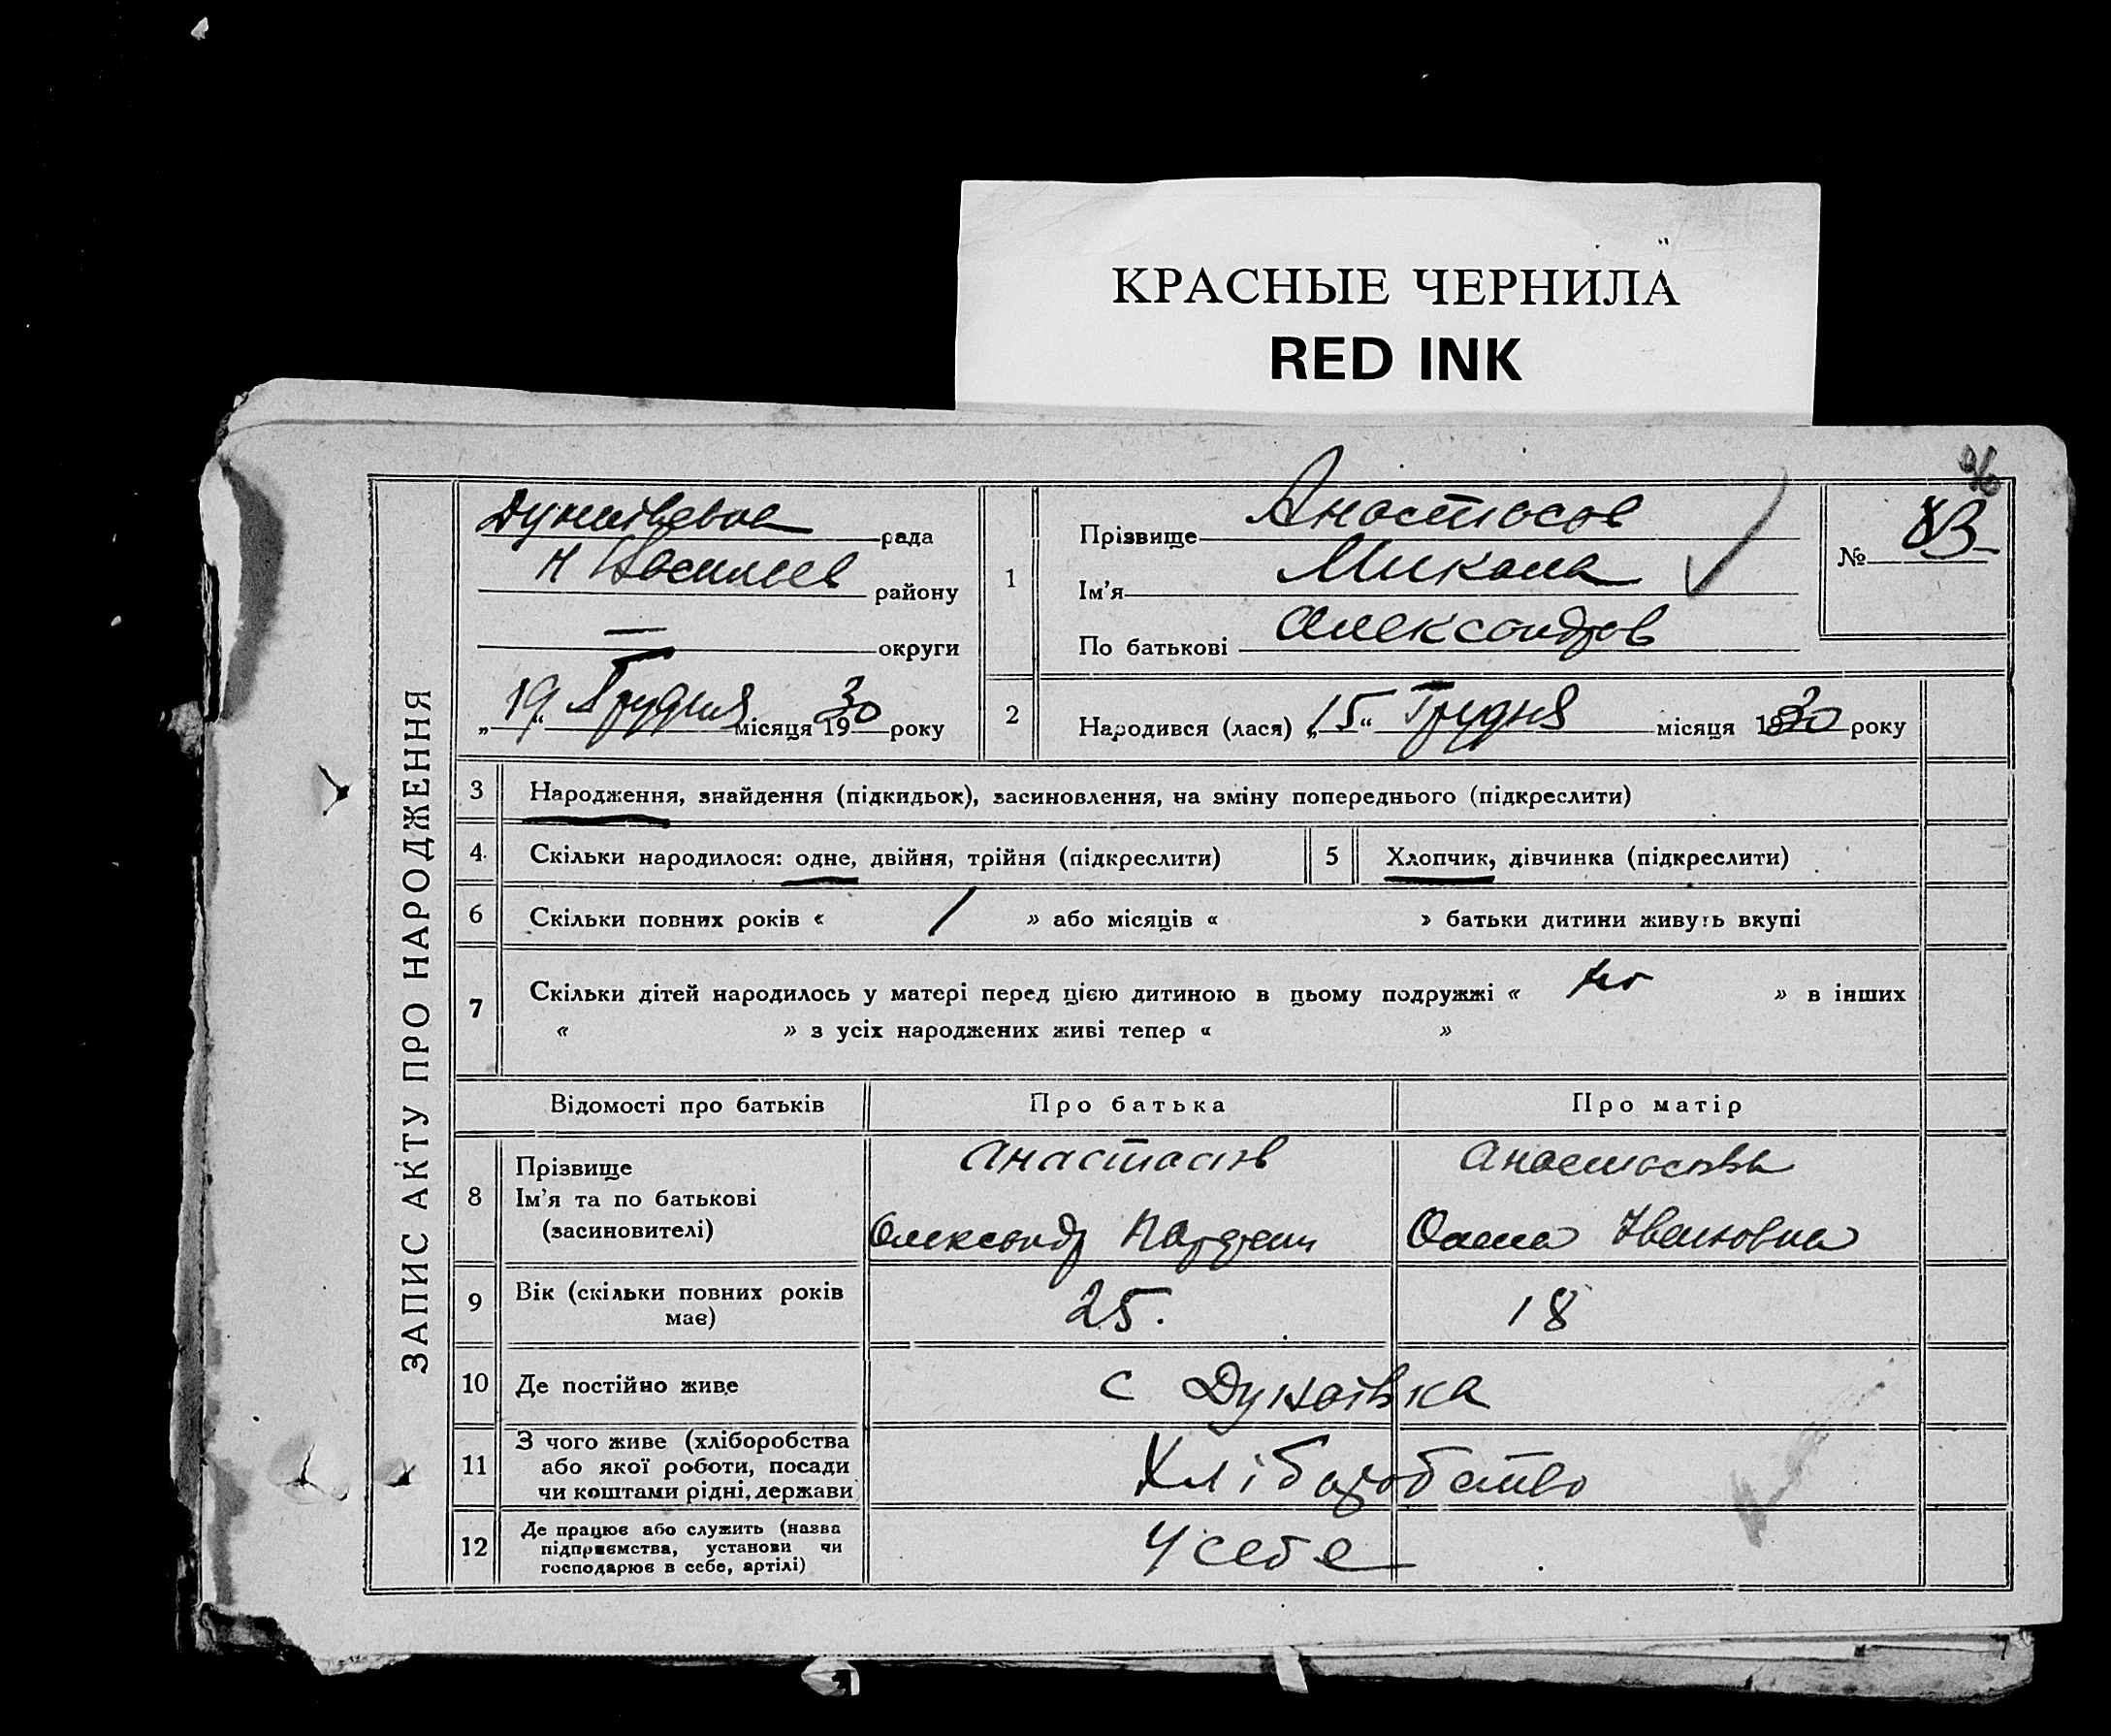 КРАСНЫЕ ЧЕРНИЛА
RED INK
96
ЗАПИС АКТУ ПРО НАРОДЖЕННЯ
рада
Н Васильев району
— округи
„19“ Грудня місяця 1930 року
1
Прізвище Анастасов
Ім'я Микола
По батькові Александров
№ 83
2 Народився (лася) „15“ Грудня місяця 1930 року
3 Народження, знайдення (підкидьок), засиновлення, на зміну попереднього (підкреслити)
4 Скільки народилося: одне, двійня, трійня (підкреслити) 5 Хлопчик, дівчинка (підкреслити)
6 Скільки повних років « / » або місяців « » батьки дитини живуть вкупі
7 Скільки дітей народилось у матері перед цією дитиною в цьому подружжі « » в інших
« » з усіх народжених живі тепер « »
Відомості про батьків Про батька Про матір
8 Прізвище Анастасов Анастасова
Ім'я та по батькові
(засиновителі) Олександр Ивановна
9 Вік (скільки повних років
має) 25. 18
10 Де постійно живе с Дунаівка
11 З чого живе (хліборобства
або якої роботи, посади
чи коштами рідні, держави Хліборобство
12 Де працює або служить (назва
підприємства, установи чи
господарює в себе, артілі) У себе